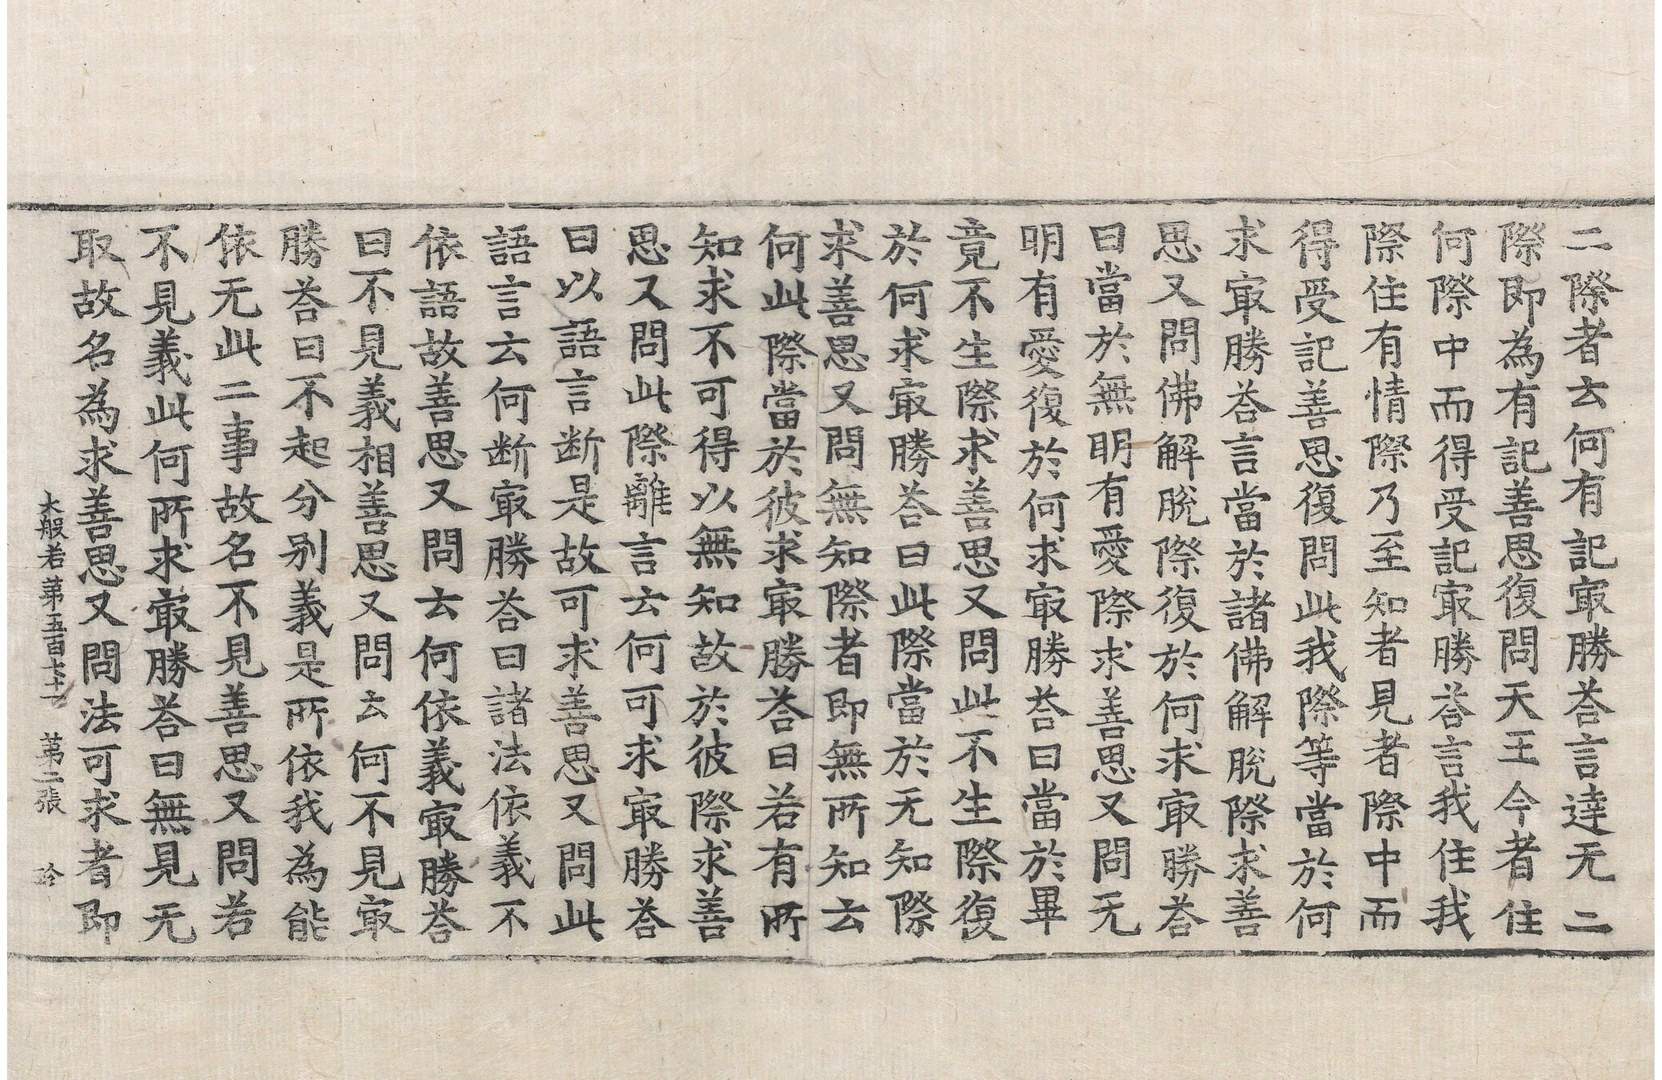 二際者去何有記㝡勝荅言達无二
際即為有記善思復問天王今者住
何際中而得受記㝡勝荅言我住我
際住有情際乃至知者見者際中而
得受記善思復問此我際等當於何
求㝡勝荅言當於諸佛解脫際求善
思又問佛解脫際復於何求㝡勝荅
曰當於無明有愛際求善思又問无
明有愛復於何求㝡勝荅曰當於畢
竟不生際求善思又問此不生際復
於何求㝡勝荅曰此際當於无知際
求善思又問無知際者即無所知云
何此際當於彼求㝡勝荅曰若有所
知求不可得以無知故於彼際求善
思又問此際離言云何可求㝡勝荅
曰以語言断是故可求善思又問此
語言云何断㝡勝荅曰諸法依義不
依語故善思又問云何依義㝡勝荅
曰不見義相善思又問云何不見㝡
勝荅曰不起分别義是所依我為能
依无此二事故名不見善思又問若
不見義此何所求㝡勝荅曰無見无
取故名為求善思又問法可求者即
大般若第五百七十二　第二張　珍